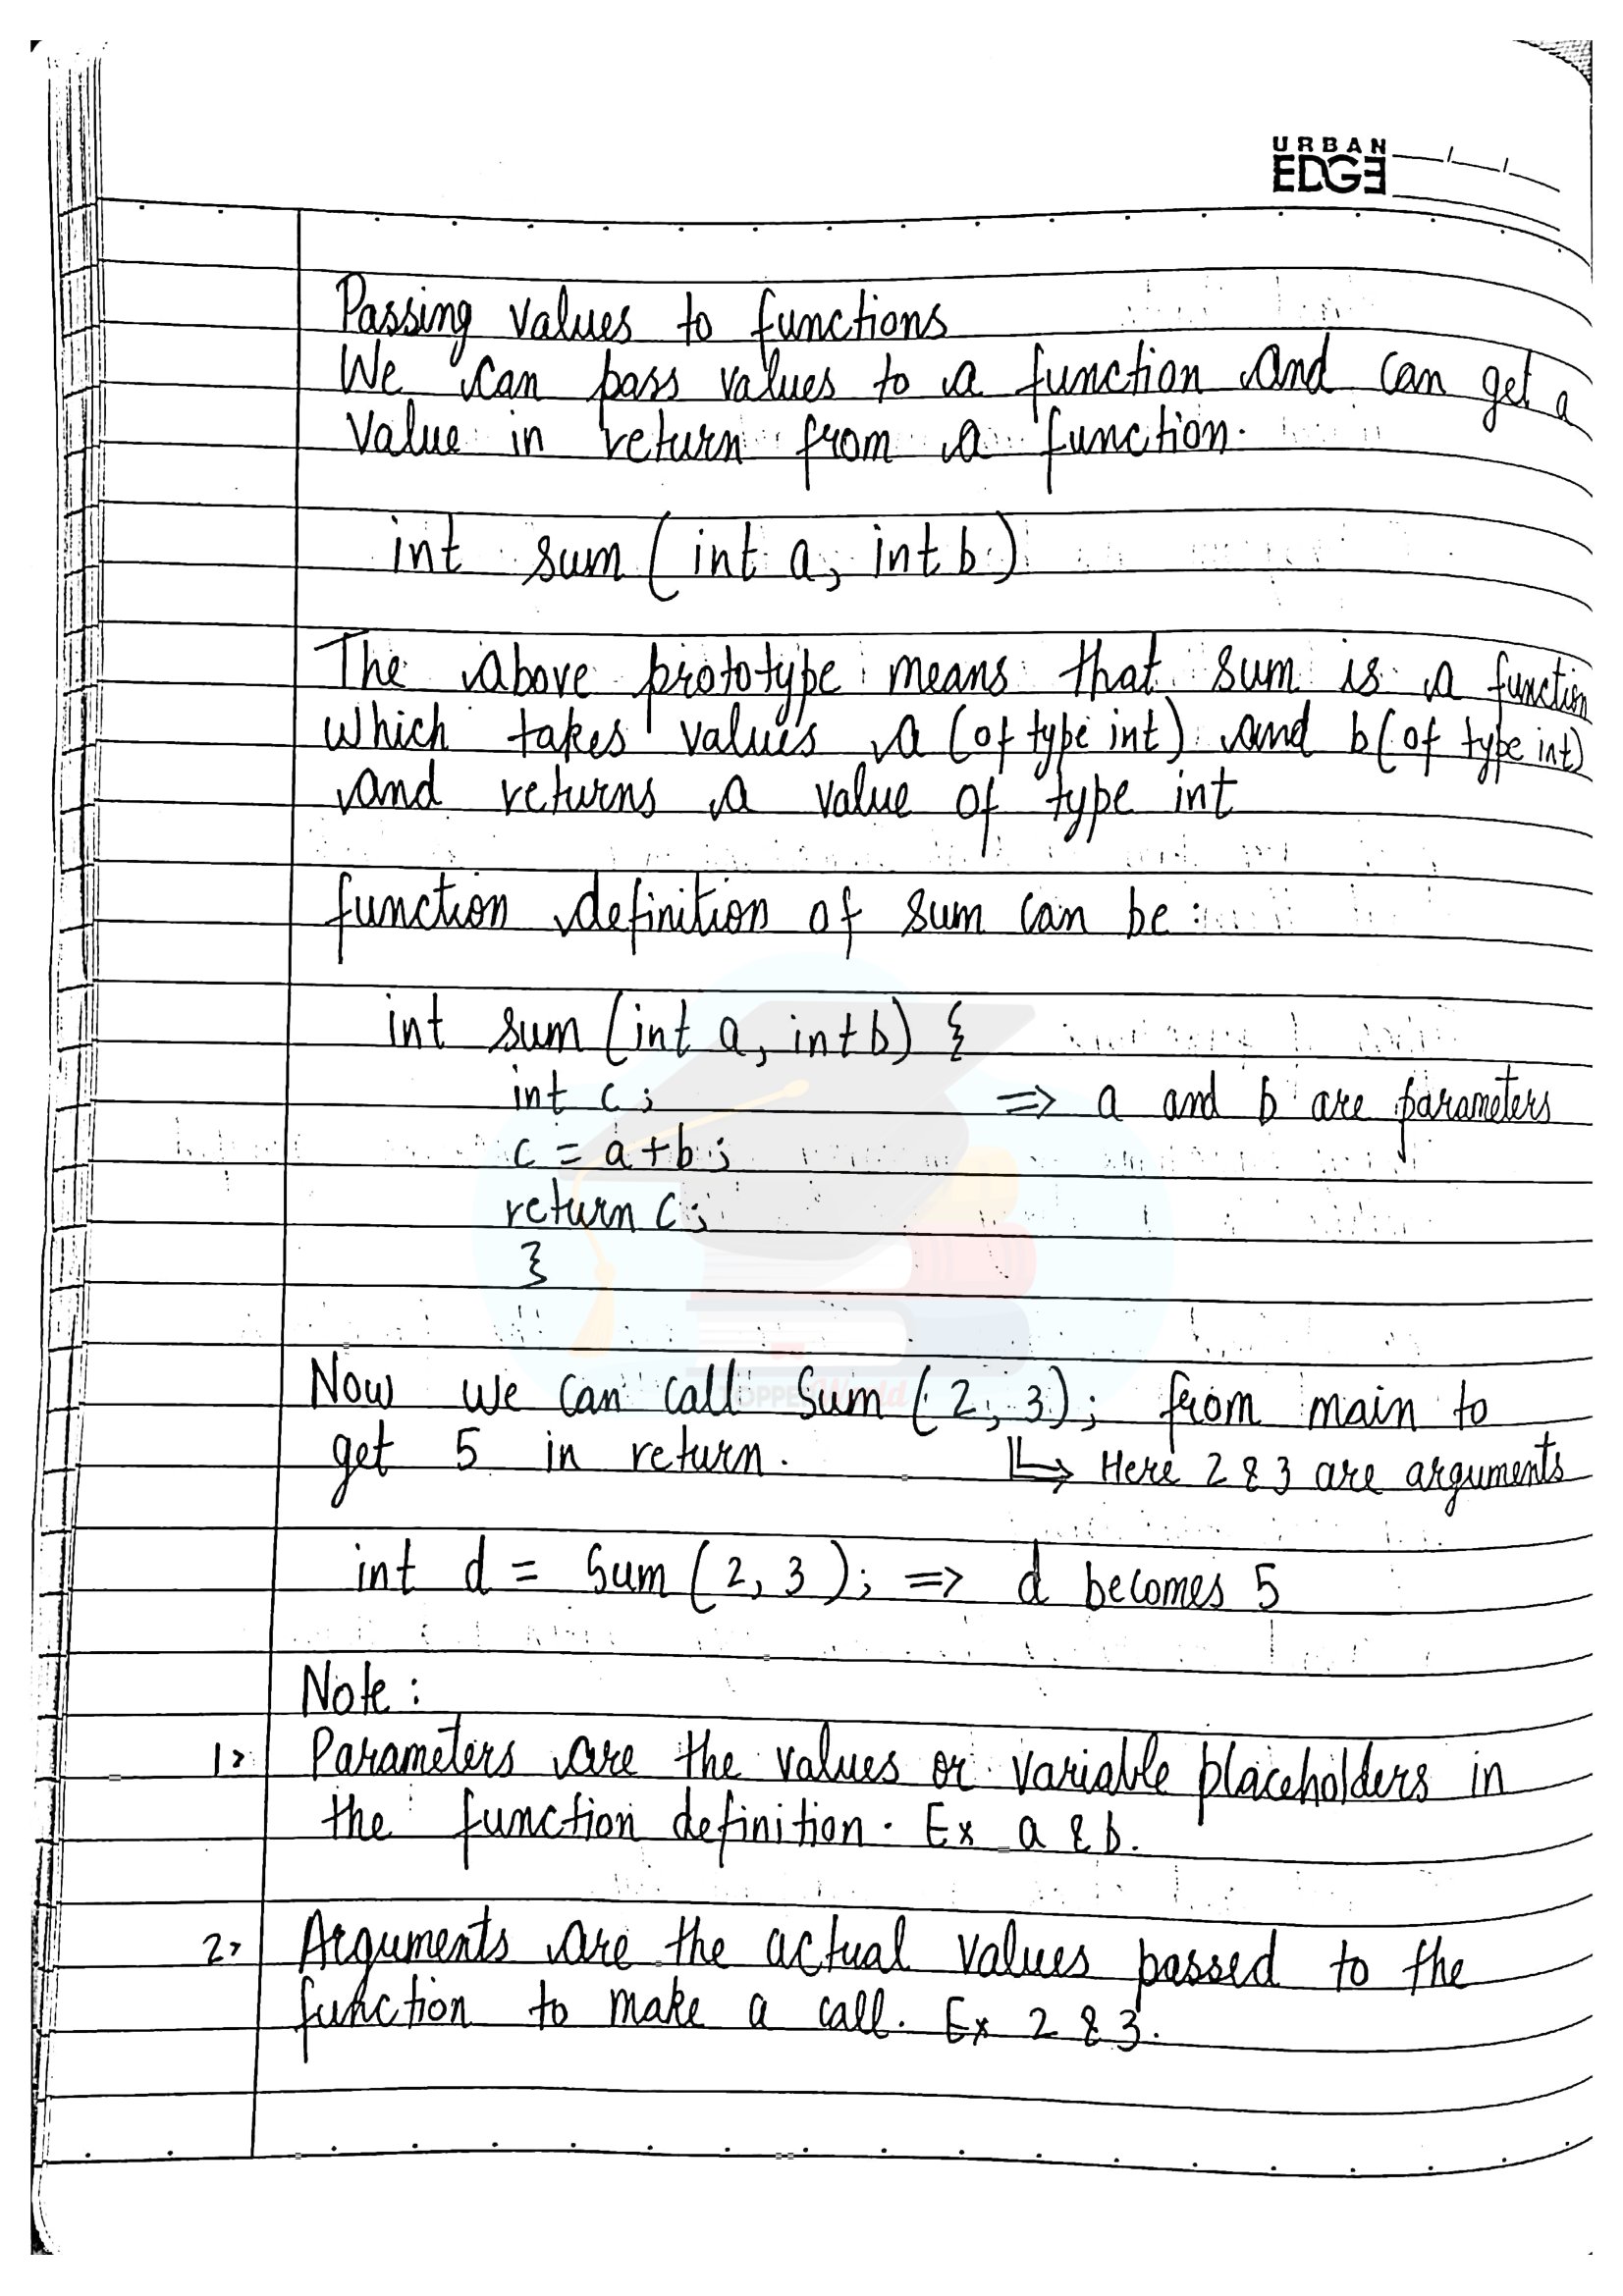 URBAN
EDGE
Passing values to functions
We can pass values to a function and can get a
Value in return from a function.
int sum ( int a, int b )
The above prototype means that sum is a function
which takes values a (of type int) and b (of type int)
and returns a value of type int
function definition of sum can be :
int sum (int a, int b) {
int c ; => a and b are parameters
c = a + b ;
return c ;
}
Now we can call Sum ( 2, 3 ) ; from main to
get 5 in return. ↳ Here 2 & 3 are arguments
int d = Sum ( 2, 3 ) ; => d becomes 5
Note :
1> Parameters are the values or variable placeholders in
the function definition. Ex a & b.
2> Arguments are the actual values passed to the
function to make a call. Ex 2 & 3.
TOPPER World